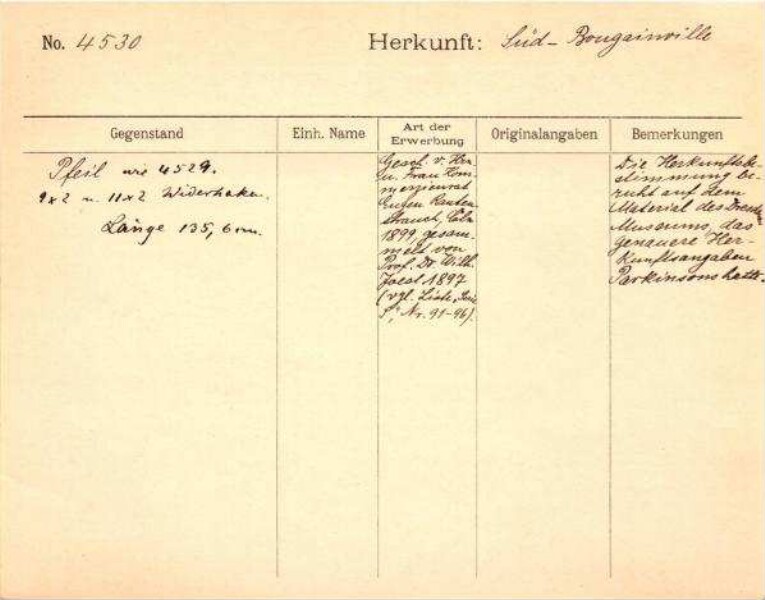 No. 4530 Herkunft: Süd-Bougainville
Gegenstand
Einh. Name
Art der
Erwerbung
Originalangaben
Bemerkungen
Pfeil wie 4529.
9x2 u. 11x2 Widerhaken.
Länge 135,6 cm.
Gesch. v. Herr
u. Frau Kom-
merzienrat
Eugen Rauten-
strauch, Cöln
1899, gesam-
melt von
Prof. Dr. Wilh.
Joest 1897
(vgl. Liste, Serie
Nr. 91-96).
Die Herkunftsbe-
stimmung be-
ruht auf dem
Material des Dresdner
Museums, das
genauere Her-
kunftsangaben
Parkinsons hatte.